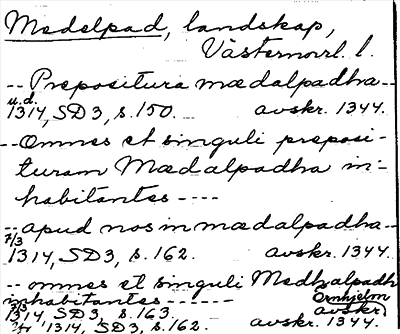 Medelpad, landskap,
Västernorrl. l.
-- Prepositura mædalpadha --
u.d.
1314, SD3, s. 150. avskr. 1344.
-- Omnes et singuli preposi-
turam Mædalpadha in-
habitantes ----
-- apud nos in mædalpadha --
7/3
1314, SD3, s. 162. avskr. 1344.
-- omnes et singuli Medhalpadh
inhabitantes ------ Örnhjelm
7/3 avskr.
1314, SD3, s. 163.
1314, SD3, s. 162. avskr. 1344.